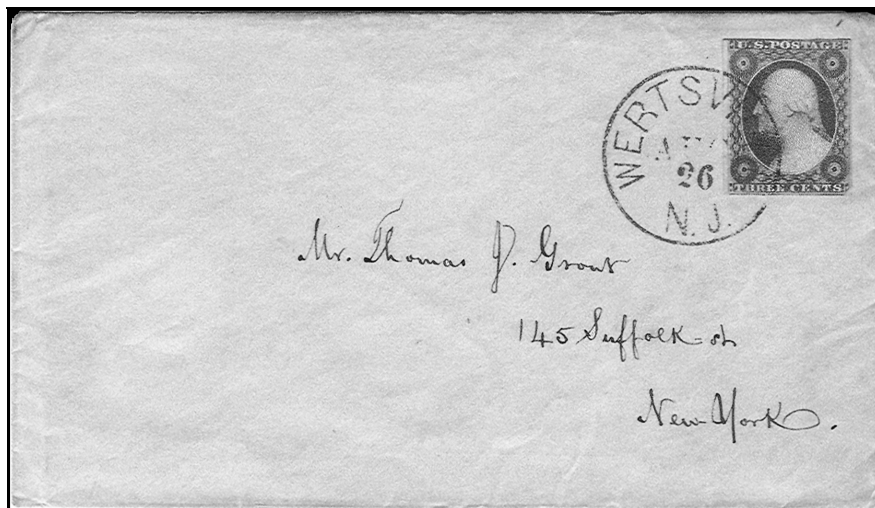 U.S. POSTAGE
THREE CENTS
26
N.J.
Mr. Thomas J. Grout
145 Suffolk-st
New-York.